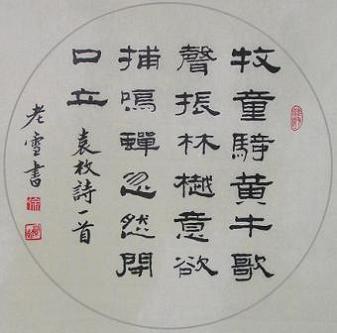 牧童騎黄牛歌
聲振林樾意欲
捕鳴蟬忽然閉
口立
袁枚詩一首
老雪書